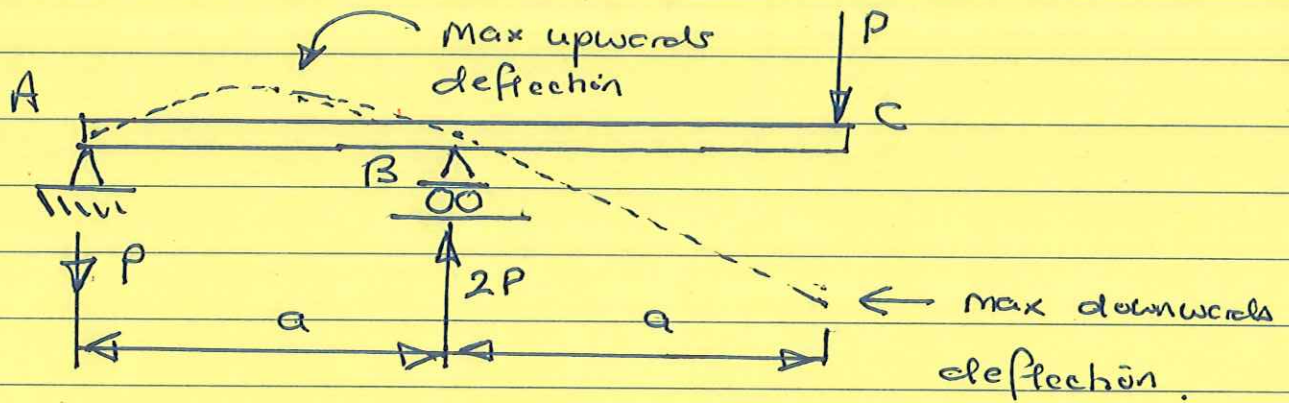 Max upwards
deflection
P
A
C
B
P
2P
a
a
max downwards
deflection.